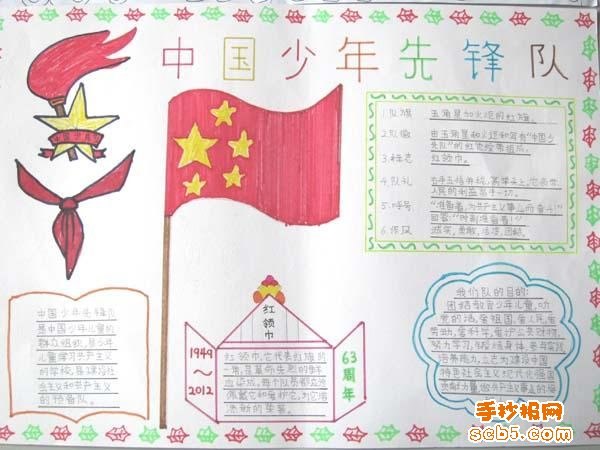 中国少年先锋队
1.队旗 五角星加火炬的红旗。
2.队徽 由五角星和火炬和写有"中国少
先队"的红色绶带组成。
3.标志 红领巾。
4.队礼 右手五指并拢,高举头上,它表示
人民的利益高于一切。
5.呼号 "准备着,为共产主义事业而奋斗!"
回答:"时刻准备着!"
6.作风 诚实,勇敢,活泼,团结。
中国少年先锋队
是中国少年儿童的
群众组织,是少年
儿童学习共产主义
的学校,是建设社
会主义和共产主义
的预备队。
红领巾
1949
~
2012
红领巾它代表红旗的
一角,是革命先烈的鲜
血染成。每个队员都应该
佩戴它和爱护它,为它增
添新的荣誉。
63周年
我们队的目的:
团结教育少年儿童,听
党的话,爱祖国,爱人民,爱
劳动,爱科学,爱护公共财物,
努力学习,锻炼身体,参与实践,
培养能力,立志为建设中国
特色社会主义现代化强国
贡献力量,做共产主义事业的接
手抄报网
scb5.com